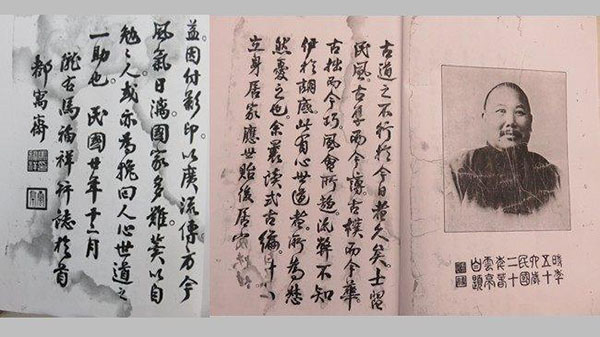 古道之不行於今日者久矣士習
民風古厚而今澆古樸而今華
古拙而今巧風會所趨流弊不知
伊於胡底此有心世道者所為
然憂之也余曩讀式古編計
立身居家應世貽後居官
益因付影印以廣流傳方今
風氣日漓國家多難冀以自
勉々人或亦為挽回人心世道之
一助也民國廿年十二月
隴右馬福祥并誌於首
都寓齋
時年
五十
六歲
民國
二十
年春
雲亭
自題